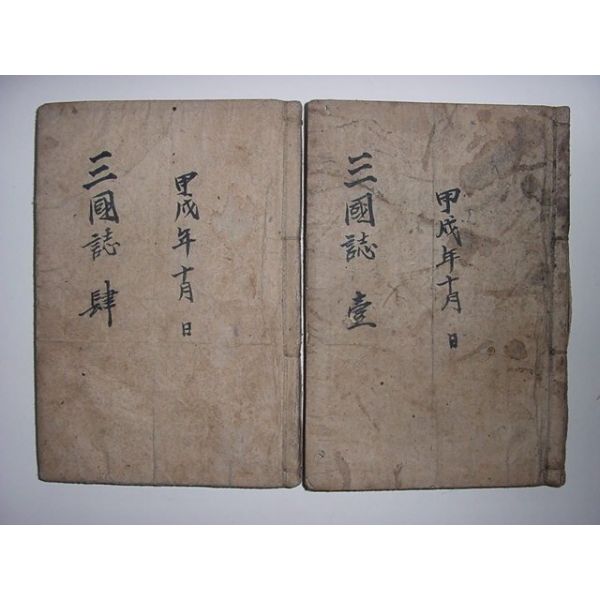 甲戌年十月 日
三國誌 壹
甲戌年十月 日
三國誌 肆